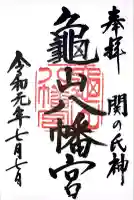 奉拝
関の氏神
亀山八幡宮
令和元年七月七日